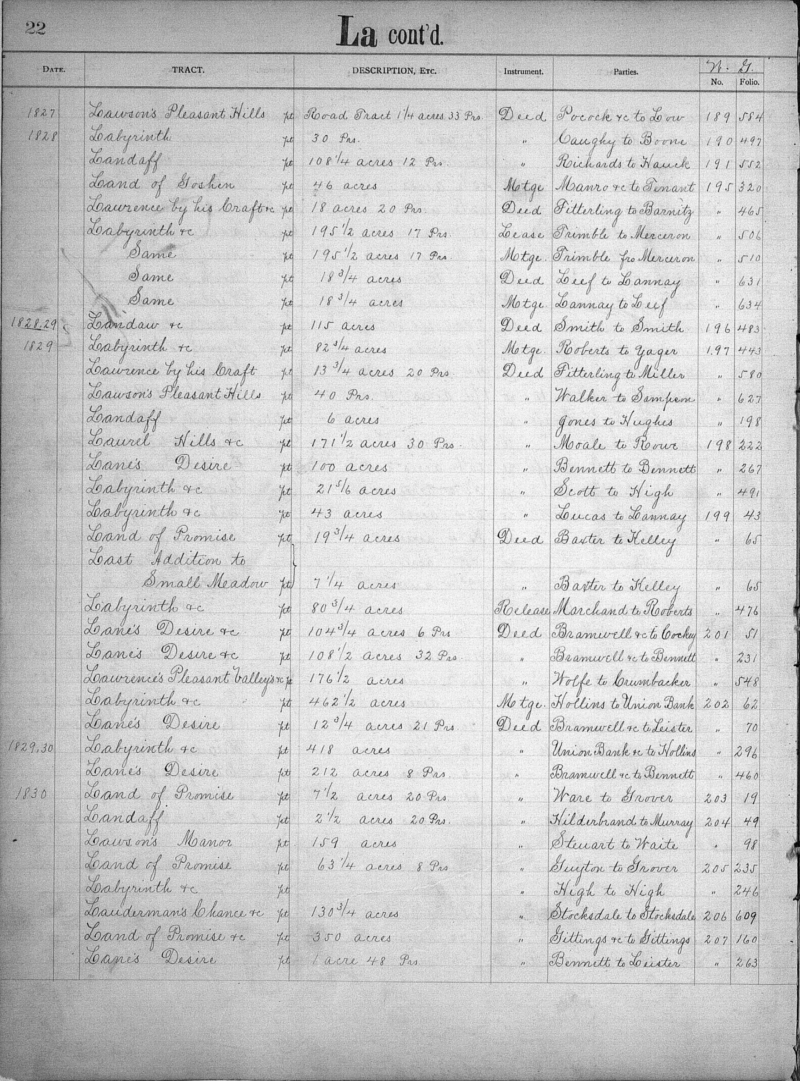 22
La cont'd.
DATE. TRACT. DESCRIPTION, ETC. Instrument. Parties. W. G.
No. Folio.
1827 Lawson's Pleasant Hills pt Road Tract 1 1/4 acres 33 Prs. Deed Pocock &c to Low 189 584
1828 Labyrinth pt 30 Prs. " Caughy to Boone 190 497
Landaff pt 108 1/4 acres 12 Prs. " Richards to Hauck 191 552
Land of Goshen pt 46 acres Mtge Manro &c to Tenant 195 320
Lawrence by his Craft &c pt 18 acres 20 Prs. Deed Fitterling to Barnitz " 465
Labyrinth &c pt 195 1/2 acres 17 Prs. Lease Trimble to Merceron " 506
Same pt 195 1/2 acres 17 Prs. Mtge. Trimble fro Merceron " 510
Same pt 18 3/4 acres Deed Leef to Lannay " 631
Same pt 18 3/4 acres Mtge. Lannay to Leef " 634
1828.29 Landaw &c pt 115 acres Deed Smith to Smith 196 483
1829 Labyrinth &c pt 82 3/4 acres Mtge. Roberts to Yager 197 443
Lawrence by his Craft pt 13 3/4 acres 20 Prs. Deed Fitterling to Miller " 580
Lawson's Pleasant Hills pt 40 Prs. " Walker to Sampson " 627
Landaff pt 6 acres " Jones to Hughes " 198
Laurel Hills &c pt 171 1/2 acres 30 Prs. " Moale to Rowe 198 222
Lane's Desire pt 100 acres " Bennett to Bennett " 267
Labyrinth &c pt 21 5/6 acres " Scott to High " 491
Labyrinth &c pt 43 acres " Lucas to Lannay 199 43
Land of Promise pt 19 3/4 acres Deed Baxter to Kelley " 65
Last Addition to
Small Meadow pt 7 1/4 acres " Baxter to Kelley " 65
Labyrinth &c pt 80 3/4 acres Release Marchand to Roberts " 476
Lane's Desire &c pt 104 3/4 acres 6 Prs Deed Bramwell &c to Cockey 201 51
Lane's Desire &c pt 108 1/2 acres 32 Prs " Bramwell &c to Bennett " 231
Lawrence's Pleasant Valleys &c pt 176 1/2 acres " Wolfe to Crumbacker " 548
Labyrinth &c pt 462 1/2 acres Mtge. Hollins to Union Bank 202 62
Lane's Desire pt 12 3/4 acres 21 Prs Deed Bramwell &c to Leister " 70
1829.30 Labyrinth &c pt 418 acres " Union Bank &c to Hollins " 296
Lane's Desire pt 212 acres 8 Prs. " Bramwell &c to Bennett " 460
1830 Land of Promise pt 7 1/2 acres 20 Prs. " Ware to Grover 203 19
Landaff pt 2 1/2 acres 20 Prs. " Hilderbrand to Murray 204 49
Lawson's Manor pt 159 acres " Steuart to Waite " 98
Land of Promise pt 63 1/4 acres 8 Prs " Guyton to Grover 205 235
Labyrinth &c pt " High to High " 246
Lauderman's Chance &c pt 130 3/4 acres " Stocksdale to Stocksdale 206 609
Land of Promise &c pt 350 acres " Gittings &c to Gittings 207 160
Lane's Desire pt 1 acre 48 Prs. " Bennett to Leister " 263